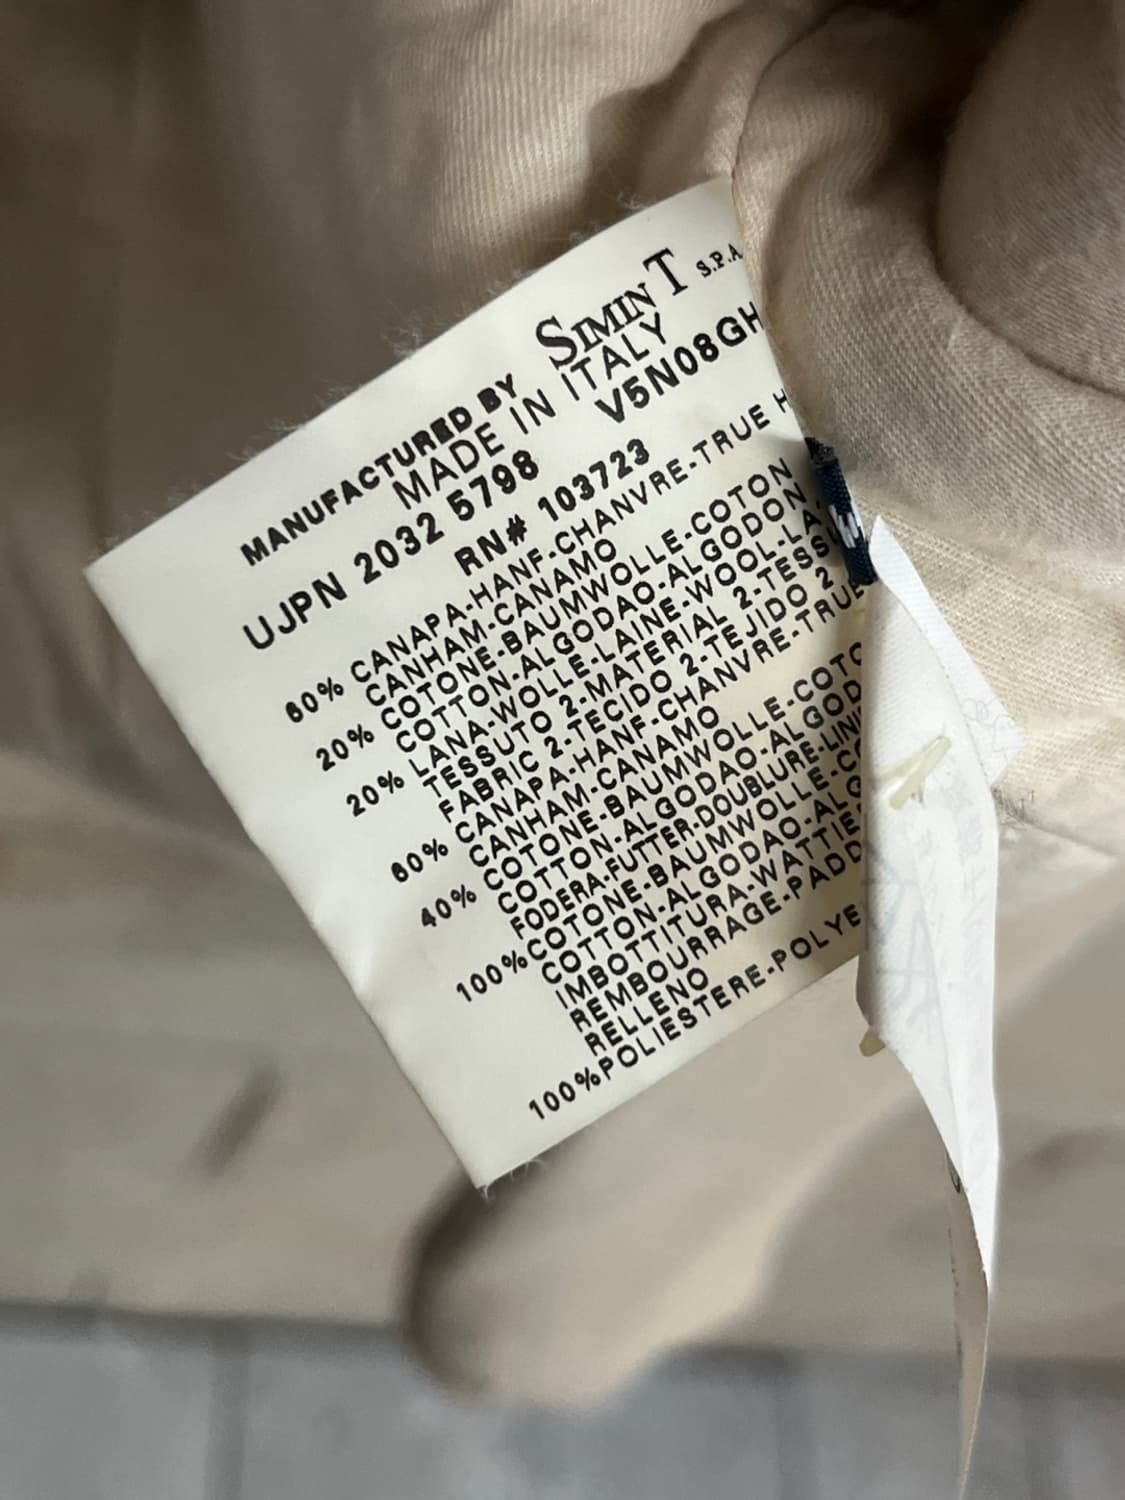 MANUFACTURED BY SIMINT S.P.A.
MADE IN ITALY
UJPN 2032 5798 V5N08GH
RN# 103723
60% CANAPA-HANF-CHANVRE-TRUE
CANHAM-CANAMO
20% COTONE-BAUMWOLLE-COTON
COTTON-ALGODAO-ALGODON
20% LANA-WOLLE-LAINE-WOOL-LA
TESSUTO 2-MATERIAL 2-TESSU
FABRIC 2-TECIDO 2-TEJIDO 2
60% CANAPA-HANF-CHANVRE-TRUE
CANHAM-CANAMO
40% COTONE-BAUMWOLLE-COTO
COTTON-ALGODAO-ALGOD
FODERA-FUTTER-DOUBLURE-LINI
100% COTONE-BAUMWOLLE-CO
COTTON-ALGODAO-ALG
IMBOTTITURA-WATTIE
REMBOURRAGE-PADD
RELLENO
100% POLIESTERE-POLYE